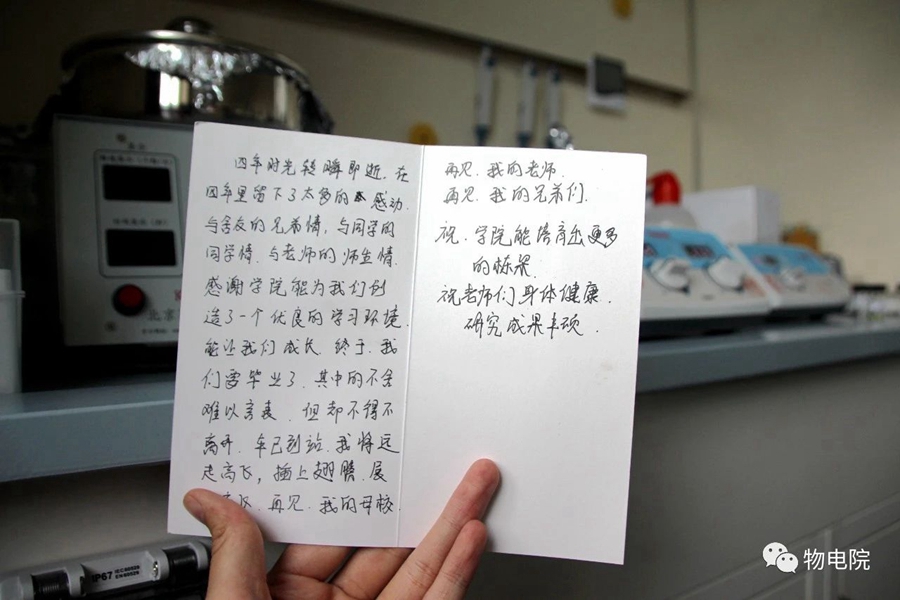 四年时光转瞬即逝.在
四年里留下了太多的感动.
与舍友的兄弟情,与同学的
同学情.与老师的师生情.
感谢学院能为我们创
造了一个优良的学习环境.
能让我们成长.终于.我
们要毕业了.其中的不舍
难以言表.但却不得不
离开.车已到站.我将远
走高飞,插上翅膀.展
飞.再见.我的母校.
再见.我的老师.
再见.我的兄弟们.
祝.学院能培育出更多
的栋梁.
祝老师们身体健康.
研究成果丰硕.
北京
IP67
物电院